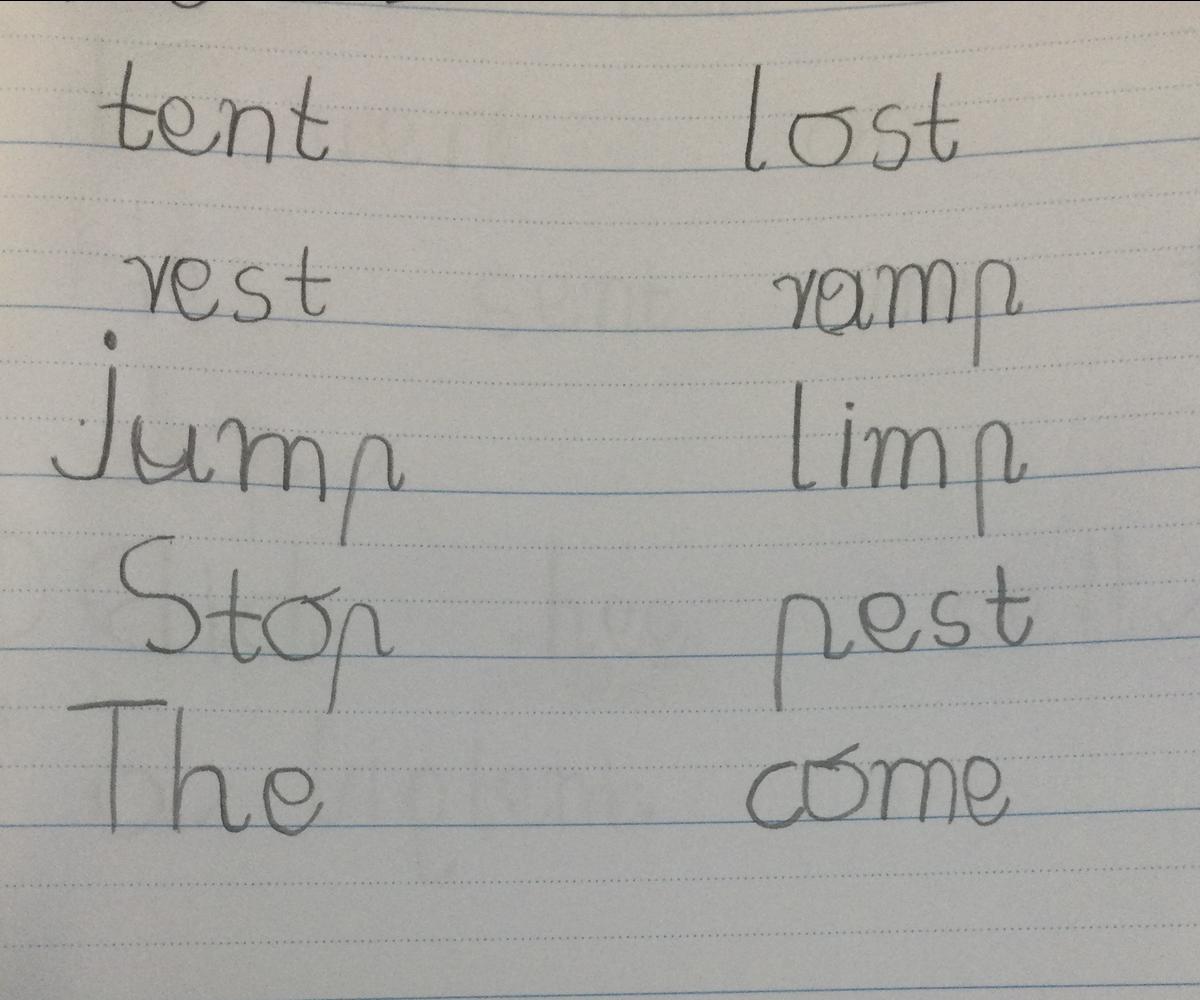 tent lost
rest ramp
jump limp
Stop pest
The come